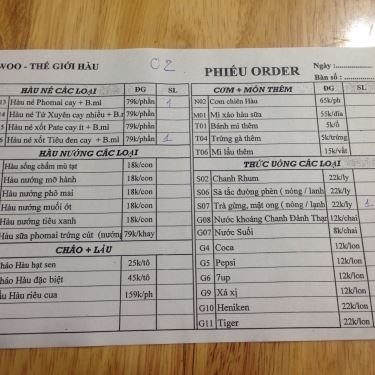 WOO - THẾ GIỚI HÀU
02
PHIẾU ORDER
Ngày :
Bàn số :
HÀU NÉ CÁC LOẠI ĐG SL
13 Hàu né Phomai cay + B.mì 79k/phần 1
Hàu né Tứ Xuyên cay nhiều + B.mì 79k/phần
Hàu né xốt Pate cay ít + B.mì 79k/phần
Hàu né xốt Tiêu đen cay + B.mì 79k/phần 1
HÀU NƯỚNG CÁC LOẠI
Hàu sống chấm mù tạt 18k/con
Hàu nướng mỡ hành 18k/con
Hàu nướng phô mai 18k/con
Hàu nướng muối ớt 18k/con
Hàu nướng tiêu xanh 18k/con
Hàu sữa phomai trứng cút (nướng 79k/khay
CHÁO + LẨU
Cháo Hàu hạt sen 25k/tô
Cháo Hàu đặc biệt 45k/tô
Lẩu Hàu riêu cua 159k/ph
CƠM + MÓN THÊM ĐG SL
N02 Cơm chiên Hàu 65k/ph
M01 Mì xào hàu sữa 55k/đĩa
T01 Bánh mì thêm 5k/ổ
T04 Trứng gà thêm 5k/trứng
T06 Mì lẩu thêm 15k/vắt
THỨC UỐNG CÁC LOẠI
S02 Chanh Rhum 22k/ly
S06 Sả tắc đường phèn ( nóng / lạnh 22k/ly
S07 Trà gừng, mật ong ( nóng / lạnh 22k/ly 1
G08 Nước khoáng Chanh Đảnh Thạnh 12k/chai
G07 Nước Suối 8k/chai
G4 Coca 12k/lon
G5 Pepsi 12k/lon
G6 7up 12k/lon
G9 Xá xị 12k/lon
G10 Heniken 22k/lon
G11 Tiger 22k/lon